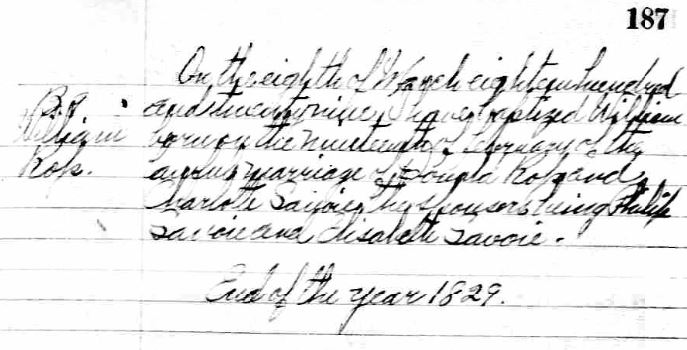 187
On the eighth of March eighteen hundred
B.9. and twenty nine I have baptized William
William born on the nineteenth of February of the
Ross. marriage of Donald Ross and
Charlotte Savoie, the sponsors being Philip
Savoie and Elisabeth Savoie.
End of the year 1829.